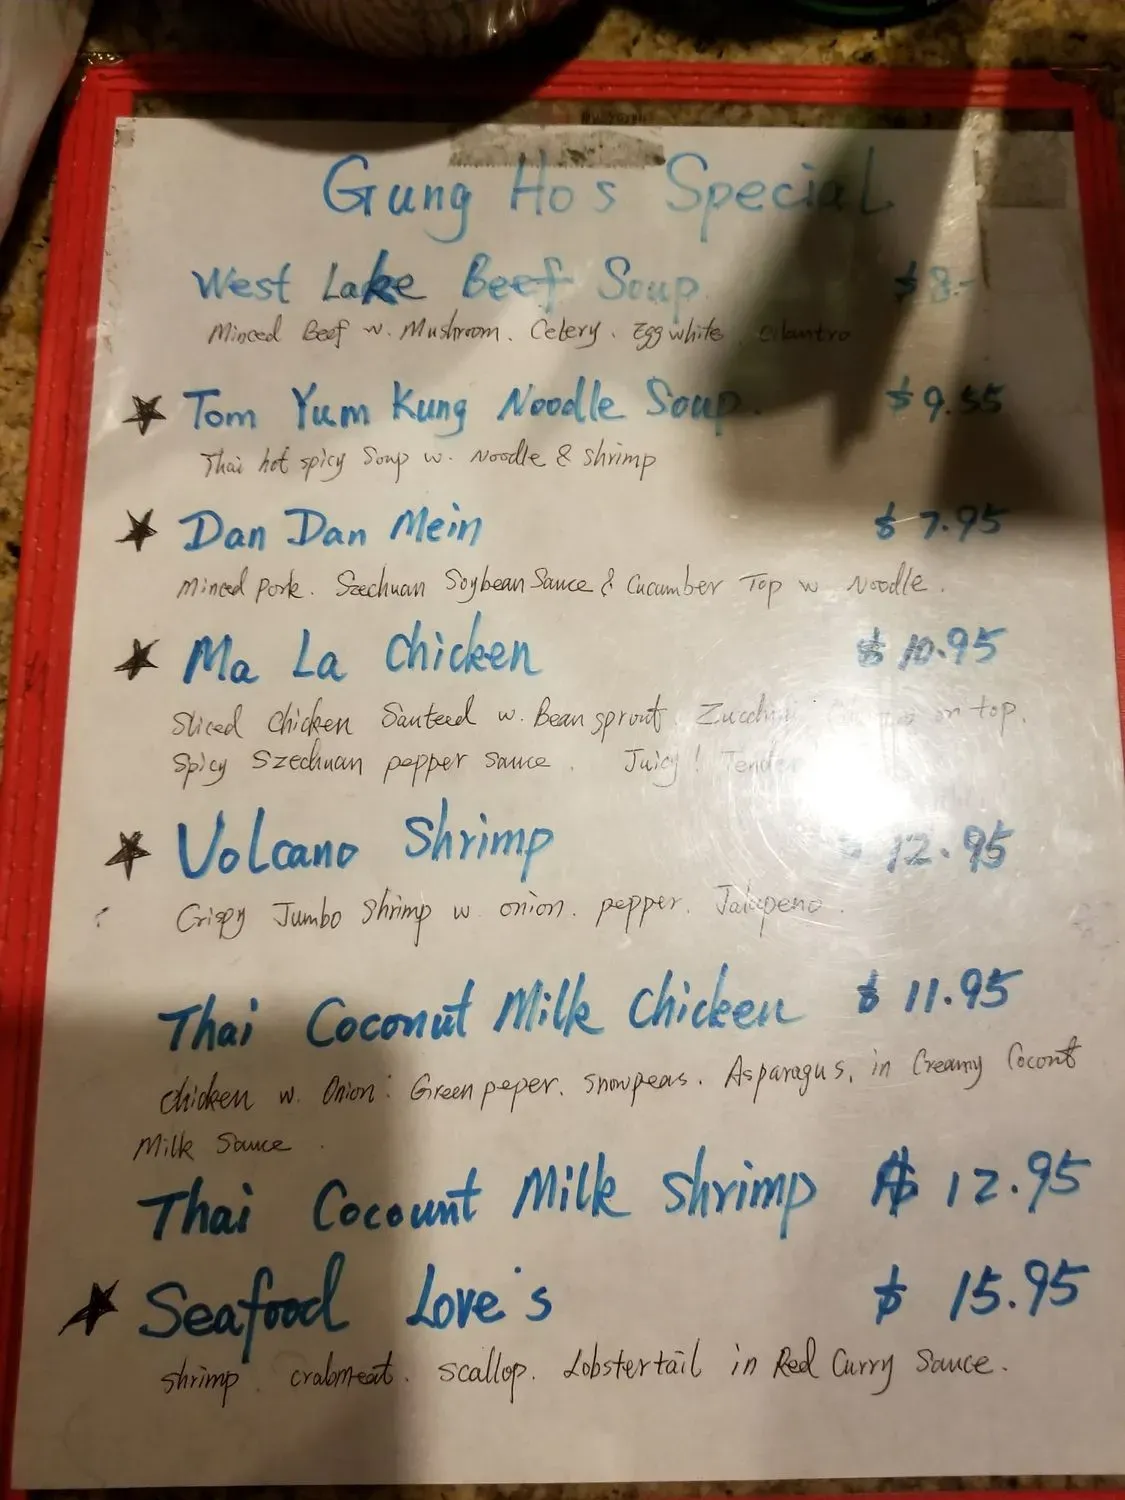 Gung Ho's Special
West Lake Beef Soup $8.-
Minced Beef w. Mushroom. Celery. Egg white. cilantro
Tom Yum Kung Noodle Soup. $9.55
Thai hot spicy Soup w. Noodle & shrimp
Dan Dan Mein $7.95
Minced pork. Szechuan Soybean Sauce & Cucumber Top w Noodle.
Ma La Chicken $10.95
Sliced Chicken Sauteed w. Bean sprout on top.
Spicy Szechuan pepper sauce. Juicy! Tender
Volcano Shrimp $12.95
Crispy Jumbo Shrimp w. onion. pepper. Jalapeno.
Thai Coconut Milk Chicken $11.95
chicken w. Onion. Green peper. snowpeas. Asparagus, in Creamy Coconut
Milk Sauce.
Thai Cocount Milk shrimp $12.95
Seafood Love's $15.95
shrimp. crabmeat. scallop. Lobster tail in Red Curry Sauce.